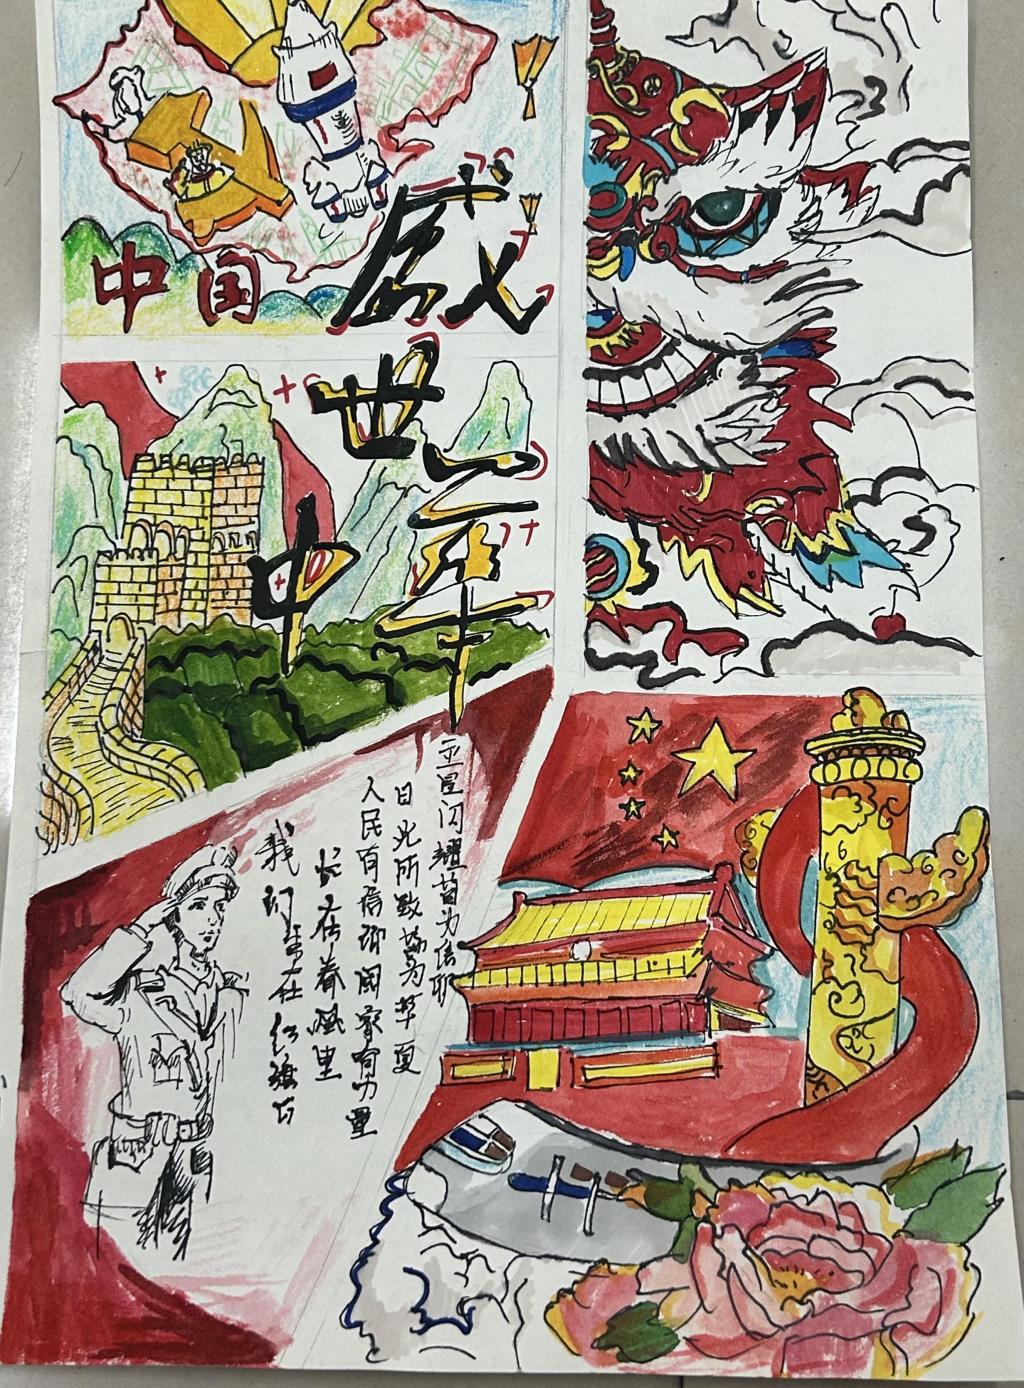 中国
盛世
中
五星闪耀皆为信仰
日光所致为华夏
人民有信仰国家有力量
长在春风里
我们生在红旗下